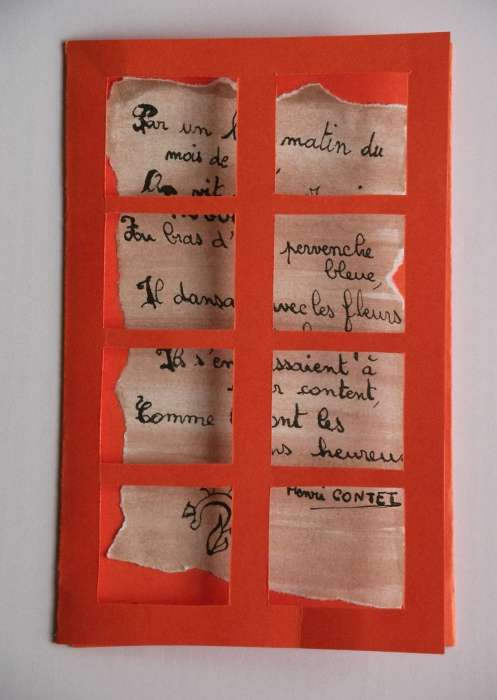 Par un matin du
mois de
On vit
Au bras d' pervenche
bleue,
Il dansa avec les fleurs
Ils s'en ssaient à
r content,
Comme ont les
ns heureu
Henri CONTET